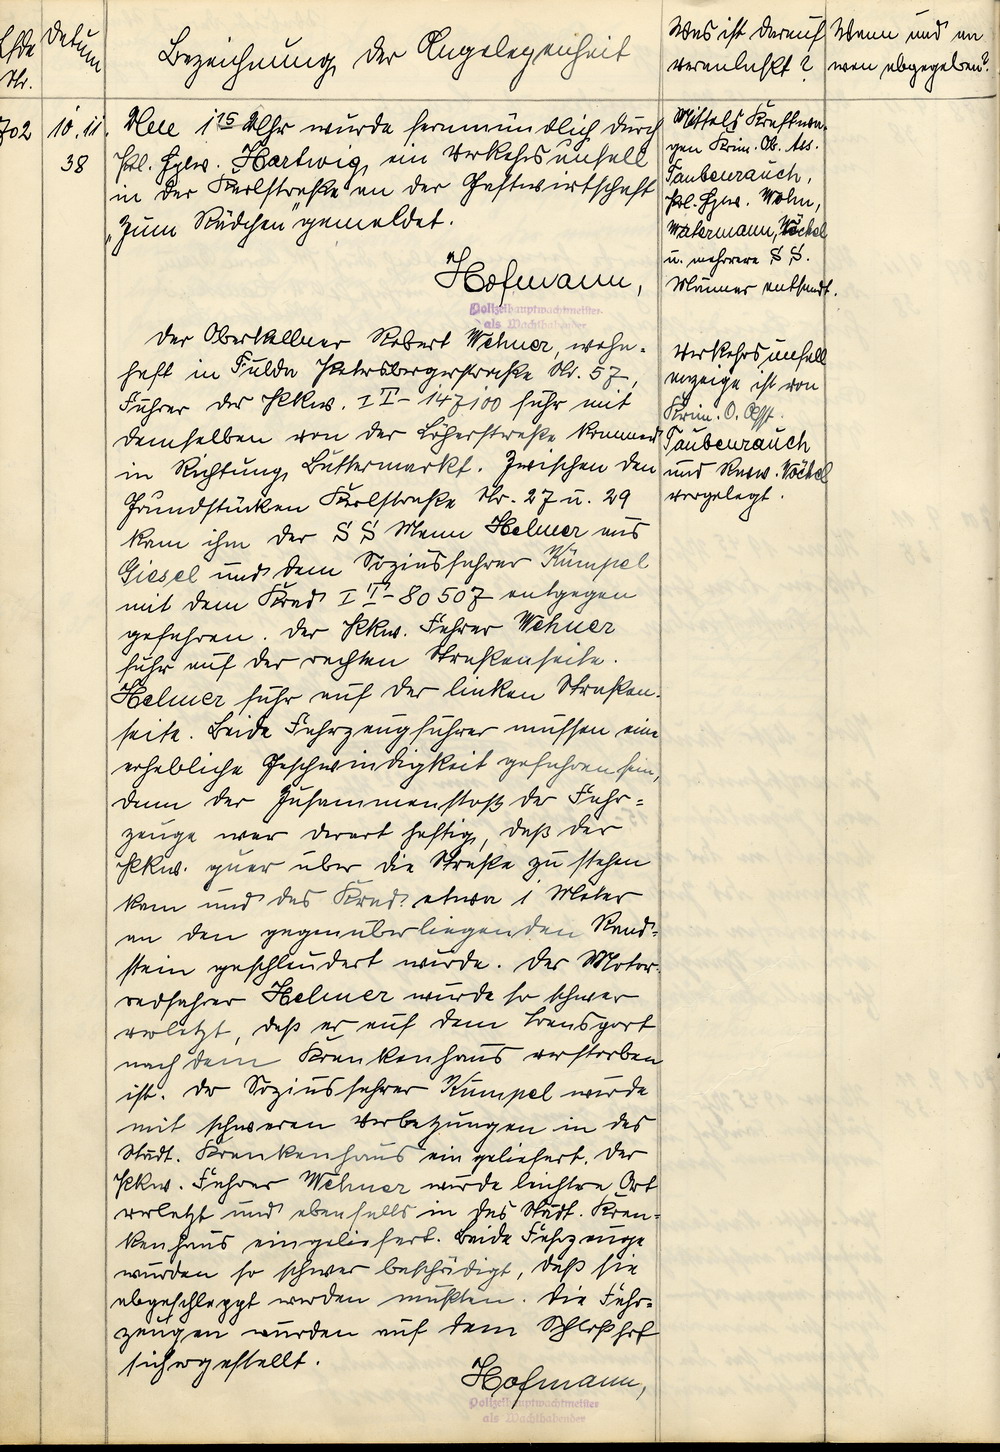 Lfde Nr.
Datum
Bezeichnung der Angelegenheit
Was ist darauf
veranlaßt?
Wann und an
wen abgegeben?
702
10.11.
38
Um 1 15 Uhr wurde fernmündlich durch
Pol. Hptw. Hartwig, ein Verkehrsunfall
in der Karlstraße an der Gastwirtschaft
„Zum Rädchen" gemeldet.
Hofmann,
Polizeihauptwachtmeister
als Wachthabender
Der Oberkellner Robert Wehner, wohn-
haft in Fulda Petersbergerstraße Nr. 57,
Führer des Pkkw. IT-147100 fuhr mit
demselben von der Löherstraße kommend
in Richtung Buttermarkt. Zwischen den
Grundstücken Karlstraße Nr. 27 u. 29
kam ihm der SS Mann Helmer aus
Giesel und dem Soziusfahrer Kümpel
mit dem Krad IT-80507 entgegen
gefahren. Der Pkkw. Fahrer Wehner
fuhr auf der rechten Straßenseite.
Helmer fuhr auf der linken Straßen-
seite. Beide Fahrzeugführer mussen eine
erhebliche Geschwindigkeit gefahren sein,
denn der Zusammenstoß der Fahr-
zeuge war derart heftig, daß der
Pkkw. quer über die Straße zu stehen
kam und das Krad etwa 1 Meter
an den gegenüberliegenden Rand-
stein geschleudert wurde. Der Motor-
radfahrer Helmer wurde so schwer
verletzt, daß er auf dem Transport
nach dem Krankenhaus verstorben
ist. Der Soziusfahrer Kümpel wurde
mit schweren Verletzungen in das
Städt. Krankenhaus eingeliefert. Der
Pkkw. Fahrer Wehner wurde leichtere Art
verletzt und ebenfalls in das Städt. Kran-
kenhaus eingeliefert. Beide Fahrzeuge
wurden so schwer beschädigt, daß sie
abgeschleppt werden mußten. Die Fahr-
zeugen wurden auf dem Schloßhof
sichergestellt.
Hofmann,
Polizeihauptwachtmeister
als Wachthabender
Mittels Kraftwa-
gen Krim. Ob. Ass.
Taubenrauch,
Pol. Hptw. Mohn,
Watermann, Röckel
u. mehrere SS.
Männer entsandt.
Verkehrsunfall
anzeige ist von
Krim. O. Asst.
Taubenrauch
und Rvw. Röckel
vorgelegt.